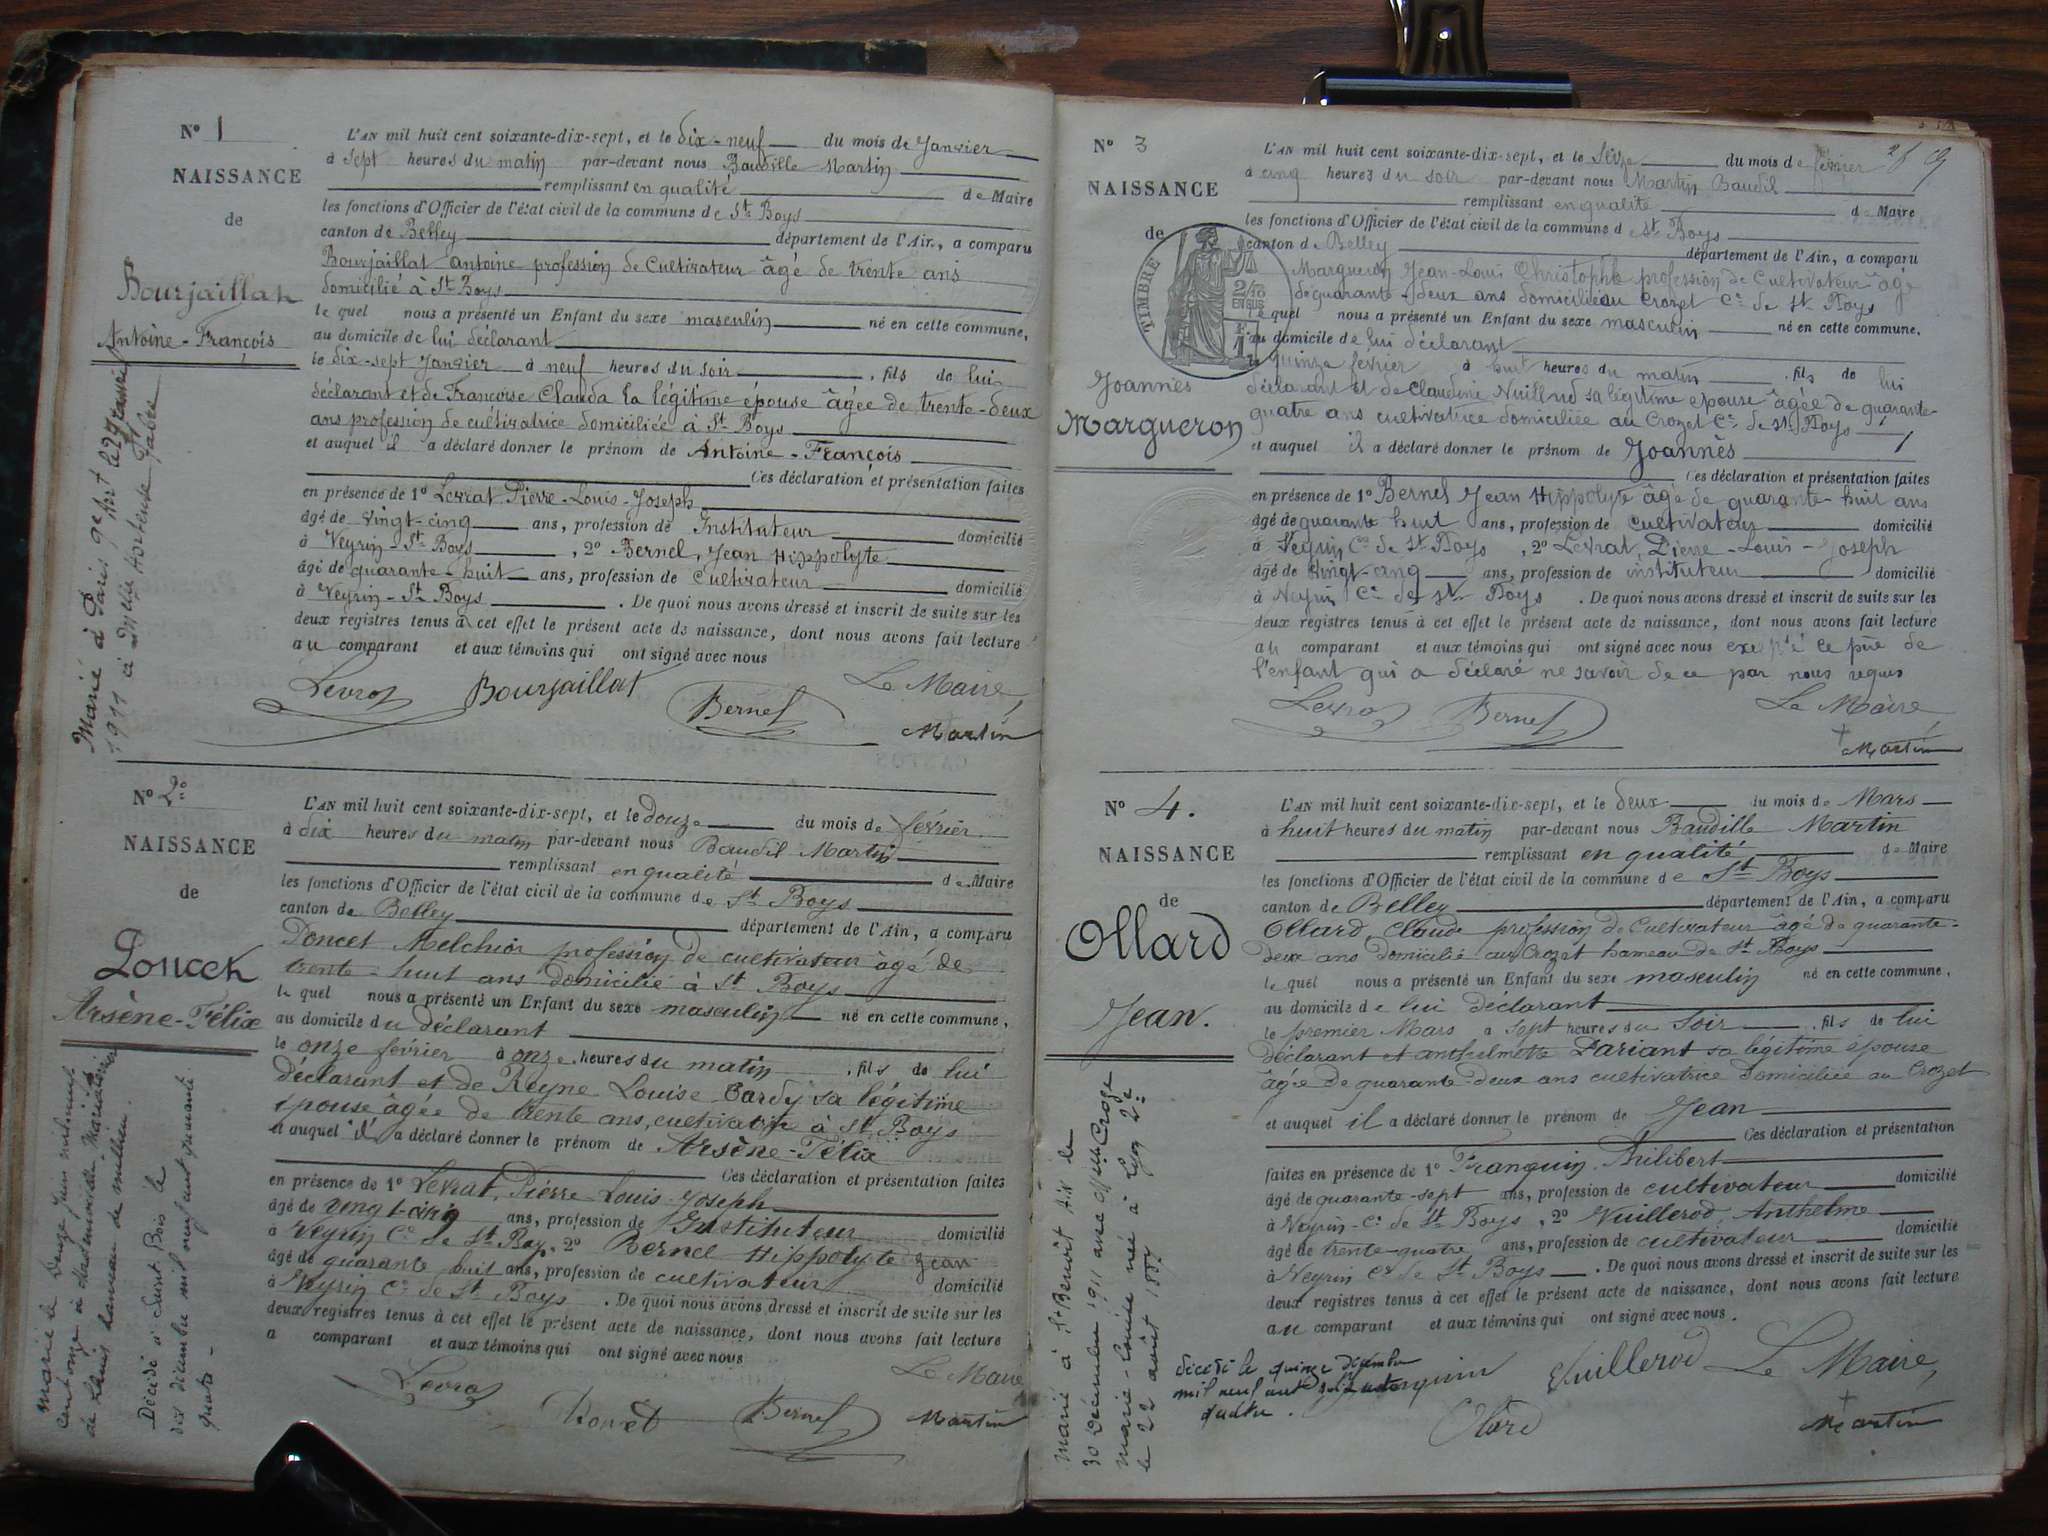 N° 1
NAISSANCE
de
Bourjaillat
Antoine-François
L'AN mil huit cent soixante-dix-sept, et le dix-neuf du mois de Janvier
à sept heures du matin par-devant nous Baudille Martin
remplissant en qualité de Maire
les fonctions d'Officier de l'état civil de la commune de St Boys
canton de Belley département de l'Ain, a comparu
Bourjaillat antoine profession de Cultivateur âgé de trente ans
domicilié à St Boys
le quel nous a présenté un Enfant du sexe masculin né en cette commune,
au domicile de lui déclarant
le dix-sept Janvier à neuf heures du soir, fils de lui
déclarant et de Françoise Clauda la légitime épouse âgée de trente-deux
ans profession de cultivatrice domiciliée à St Boys
et auquel il a déclaré donner le prénom de Antoine-François
Ces déclaration et présentation faites
en présence de 1° Levrat Pierre-Louis-Joseph
âgé de vingt-cinq ans, profession de Instituteur domicilié
à Veyrin-St Boys, 2° Bernel, Jean Hippolyte
âgé de quarante-huit ans, profession de Cultivateur domicilié
à Veyrin-St Boys. De quoi nous avons dressé et inscrit de suite sur les
deux registres tenus à cet effet le présent acte de naissance, dont nous avons fait lecture
au comparant et aux témoins qui ont signé avec nous
Levrat Bourjaillat Bernel Le Maire
Martin
Marié à Paris 9e Art le 29 Janvier
1911 à Melle Hortense Fabre
N° 2°
NAISSANCE
de
Doncet
Arsène-Félix
L'AN mil huit cent soixante-dix-sept, et le douze du mois de février
à dix heures du matin par-devant nous Baudil Martin
remplissant en qualité de Maire
les fonctions d'Officier de l'état civil de la commune de St Boys
canton de Belley département de l'Ain, a comparu
Doncet Melchior profession de cultivateur âgé de
trente-huit ans domicilié à St Boys
le quel nous a présenté un Enfant du sexe masculin né en cette commune,
au domicile du déclarant
le onze février à onze heures du matin, fils de lui
déclarant et de Reyne Louise Bardy sa légitime
épouse âgée de trente ans, cultivatrice à St Boys
et auquel il a déclaré donner le prénom de Arsène-Félix
Ces déclaration et présentation faites
en présence de 1° Levrat, Pierre-Louis-Joseph
âgé de vingt-cinq ans, profession de Instituteur domicilié
à Veyrin Ce de St Boy, 2° Bernel Hippolyte Jean
âgé de quarante huit ans, profession de cultivateur domicilié
à Veyrin Ce de St Boys. De quoi nous avons dressé et inscrit de suite sur les
deux registres tenus à cet effet le présent acte de naissance, dont nous avons fait lecture
a comparant et aux témoins qui ont signé avec nous
Levrat Le Maire
Bernel Martin
marié le Douze Juin mil neuf
cent onze à
Décédé à Saint Bois le
dix décembre mil neuf cent quarante
quatre
N° 3
NAISSANCE
de
TIMBRE
2/10 EN SUS
Joannès
Margueron
L'AN mil huit cent soixante-dix-sept, et le seize du mois de février
à cinq heures du soir par-devant nous Martin Baudil
remplissant en qualité de Maire
les fonctions d'Officier de l'état civil de la commune de St Boys
canton de Belley département de l'Ain, a comparu
Margueron Jean-Louis Christophe profession de Cultivateur âgé
de quarante-deux ans domicilié au Crozet Ce de St Boys
le quel nous a présenté un Enfant du sexe masculin né en cette commune,
au domicile de lui déclarant
le quinze février à huit heures du matin, fils de lui
déclarant et de Claudine Vuillerod sa légitime épouse âgée de quarante-
quatre ans cultivatrice domiciliée au Crozet Ce de St Boys
et auquel il a déclaré donner le prénom de Joannès
Ces déclaration et présentation faites
en présence de 1° Bernel Jean Hippolyte âgé de quarante-huit ans
âgé de quarante huit ans, profession de cultivateur domicilié
à Veyrin Ce de St Boys, 2° Levrat, Pierre-Louis-Joseph
âgé de vingt-cinq ans, profession de instituteur domicilié
à Veyrin Ce de St Boys. De quoi nous avons dressé et inscrit de suite sur les
deux registres tenus à cet effet le présent acte de naissance, dont nous avons fait lecture
au comparant et aux témoins qui ont signé avec nous excepté le père de
l'enfant qui a déclaré ne savoir de ce par nous requis
Levrat Bernel Le Maire
Martin
N° 4.
NAISSANCE
de
Ollard
Jean.
L'AN mil huit cent soixante-dix-sept, et le deux du mois de Mars
à huit heures du matin par-devant nous Baudille Martin
remplissant en qualité de Maire
les fonctions d'Officier de l'état civil de la commune de St Boys
canton de Belley département de l'Ain, a comparu
Ollard, Claude profession de Cultivateur âgé de quarante-
deux ans domicilié au Crozet hameau de St Boys
le quel nous a présenté un Enfant du sexe masculin né en cette commune,
au domicile de lui déclarant
le premier Mars à sept heures du soir, fils de lui
déclarant et anthelmette Pariant sa légitime épouse
âgée de quarante-deux ans cultivatrice domiciliée au Crozet
et auquel il a déclaré donner le prénom de Jean
Ces déclaration et présentation
faites en présence de 1° Franquin Philibert domicilié
âgé de quarante-sept ans, profession de cultivateur
à Veyrin-Ce de St Boys, 2° Vuillerod, Anthelme
âgé de trente-quatre ans, profession de cultivateur domicilié
à Veyrin Ce de St Boys. De quoi nous avons dressé et inscrit de suite sur les
deux registres tenus à cet effet le présent acte de naissance, dont nous avons fait lecture
au comparant et aux témoins qui ont signé avec nous.
Vuillerod Le Maire,
Martin
marié à St Benoit Ain le
30 Décembre 1911 avec Melle Croze
Marie-Louise née à Lyon 2e
le 22 août 1887
décédé le quinze décembre
mil neuf cent
quatre.